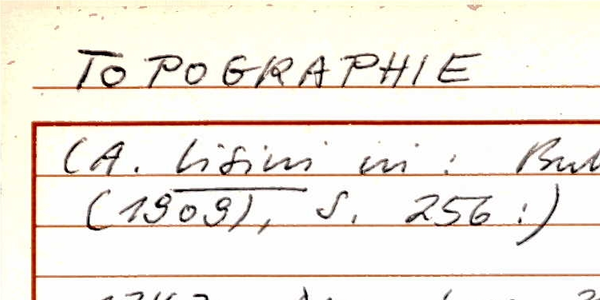 TOPOGRAPHIE
(A. Lisini in: Bul
(1909), S. 256:)